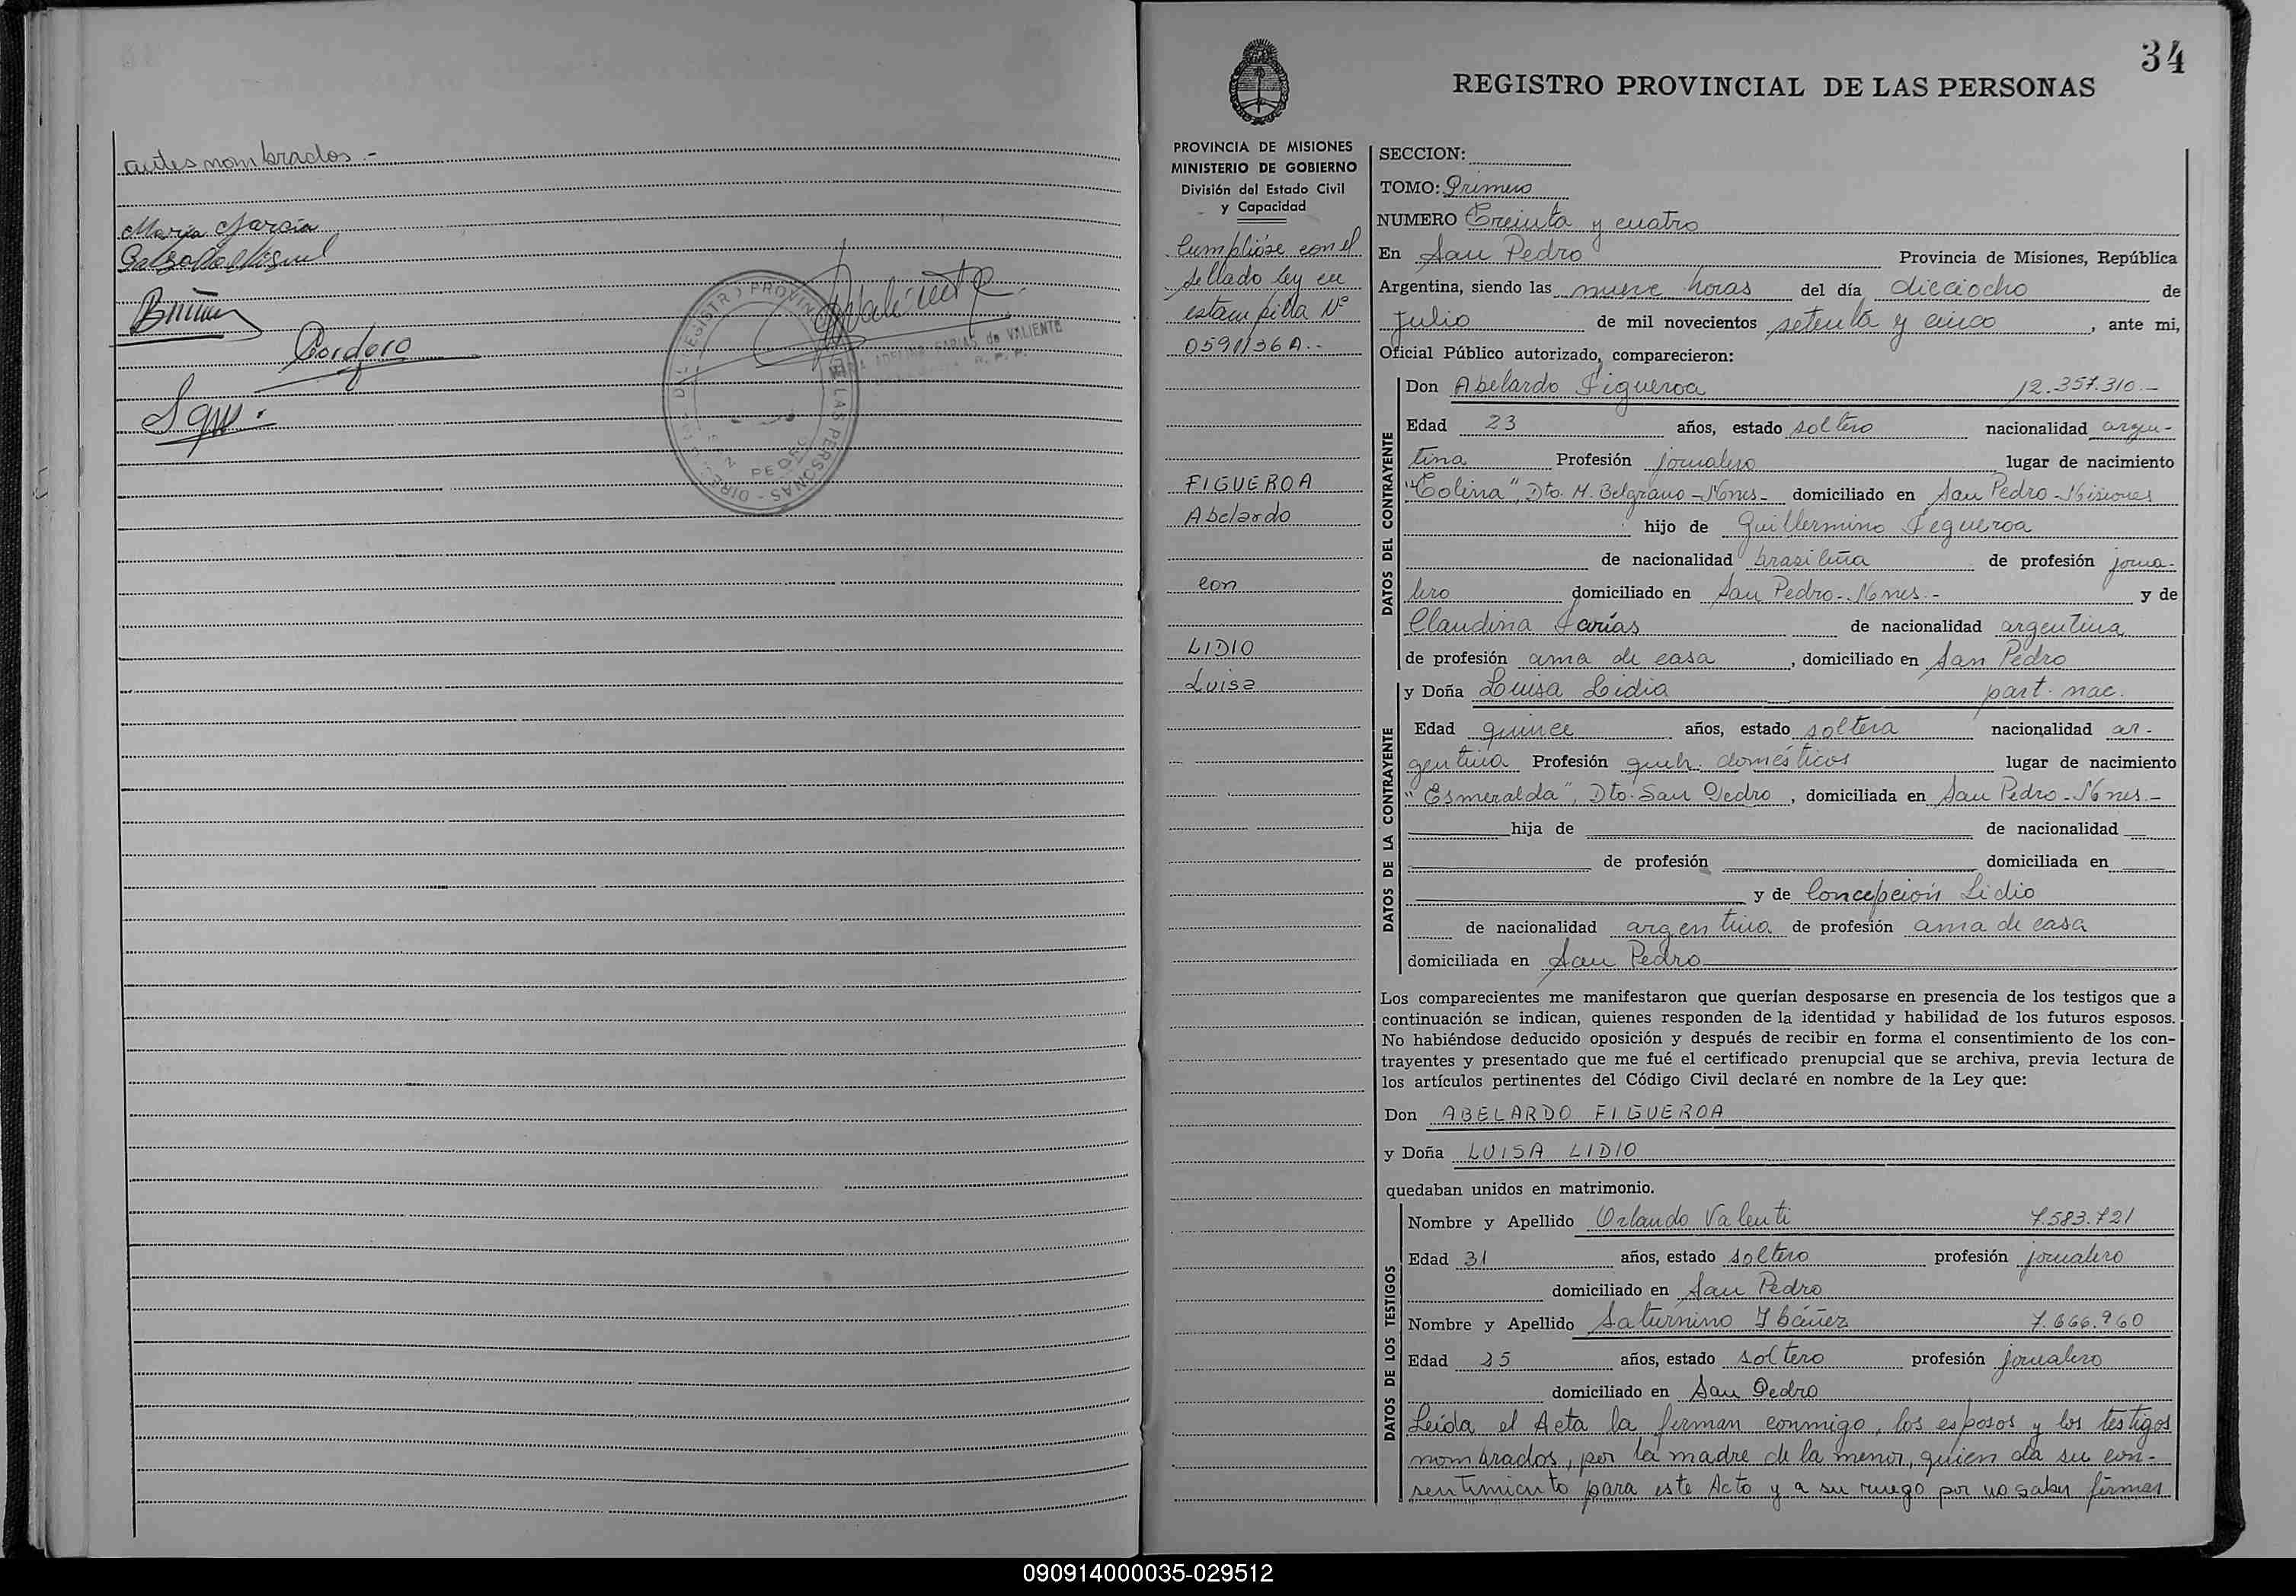 antes nombrados.-
María García
Cordero
REGISTRO PROVINCIAL DE LAS PERSONAS
SAN PEDRO
de VALIENTE
34
REGISTRO PROVINCIAL DE LAS PERSONAS
PROVINCIA DE MISIONES
MINISTERIO DE GOBIERNO
División del Estado Civil
y Capacidad
Cumplióse con el
sellado ley en
estampilla Nº
FIGUEROA
Abelardo
con
LIDIO
Luisa
SECCION:
TOMO: Primero
NUMERO Treinta y cuatro
En San Pedro Provincia de Misiones, República
Argentina, siendo las nueve horas del día dieciocho de
Julio de mil novecientos setenta y cinco, ante mi,
Oficial Público autorizado, comparecieron:
DATOS DEL CONTRAYENTE
Don Abelardo Figueroa 12.357.310.-
Edad 23 años, estado soltero nacionalidad argen-
tina Profesión jornalero lugar de nacimiento
"Colina", Dto. M. Belgrano-Mnes- domiciliado en San Pedro-Misiones
hijo de Guillermino Figueroa
de nacionalidad brasileña de profesión jorna-
lero domiciliado en San Pedro-Mnes.- y de
Claudina Farías de nacionalidad argentina
de profesión ama de casa, domiciliado en San Pedro
DATOS DE LA CONTRAYENTE
y Doña Luisa Lidia part. nac.
Edad quince años, estado soltera nacionalidad ar-
gentina Profesión queh. domésticos lugar de nacimiento
"Esmeralda", Dto. San Pedro, domiciliada en San Pedro-Mnes.-
hija de de nacionalidad
de profesión domiciliada en
y de Concepción Lidio
de nacionalidad argentina de profesión ama de casa
domiciliada en San Pedro
Los comparecientes me manifestaron que querían desposarse en presencia de los testigos que a
continuación se indican, quienes responden de la identidad y habilidad de los futuros esposos.
No habiéndose deducido oposición y después de recibir en forma el consentimiento de los con-
trayentes y presentado que me fué el certificado prenupcial que se archiva, previa lectura de
los artículos pertinentes del Código Civil declaré en nombre de la Ley que:
Don ABELARDO FIGUEROA
y Doña LUISA LIDIO
quedaban unidos en matrimonio.
DATOS DE LOS TESTIGOS
Nombre y Apellido Orlando Valenti 7.583.721
Edad 31 años, estado soltero profesión jornalero
domiciliado en San Pedro
Nombre y Apellido Saturnino Ibáñez 7.666.960
Edad 25 años, estado soltero profesión jornalero
domiciliado en San Pedro
Leída el Acta la firman conmigo, los esposos y los testigos
nombrados, por la madre de la menor, quien da su con-
sentimiento para este Acto y a su ruego por no saber firmar
090914000035-029512